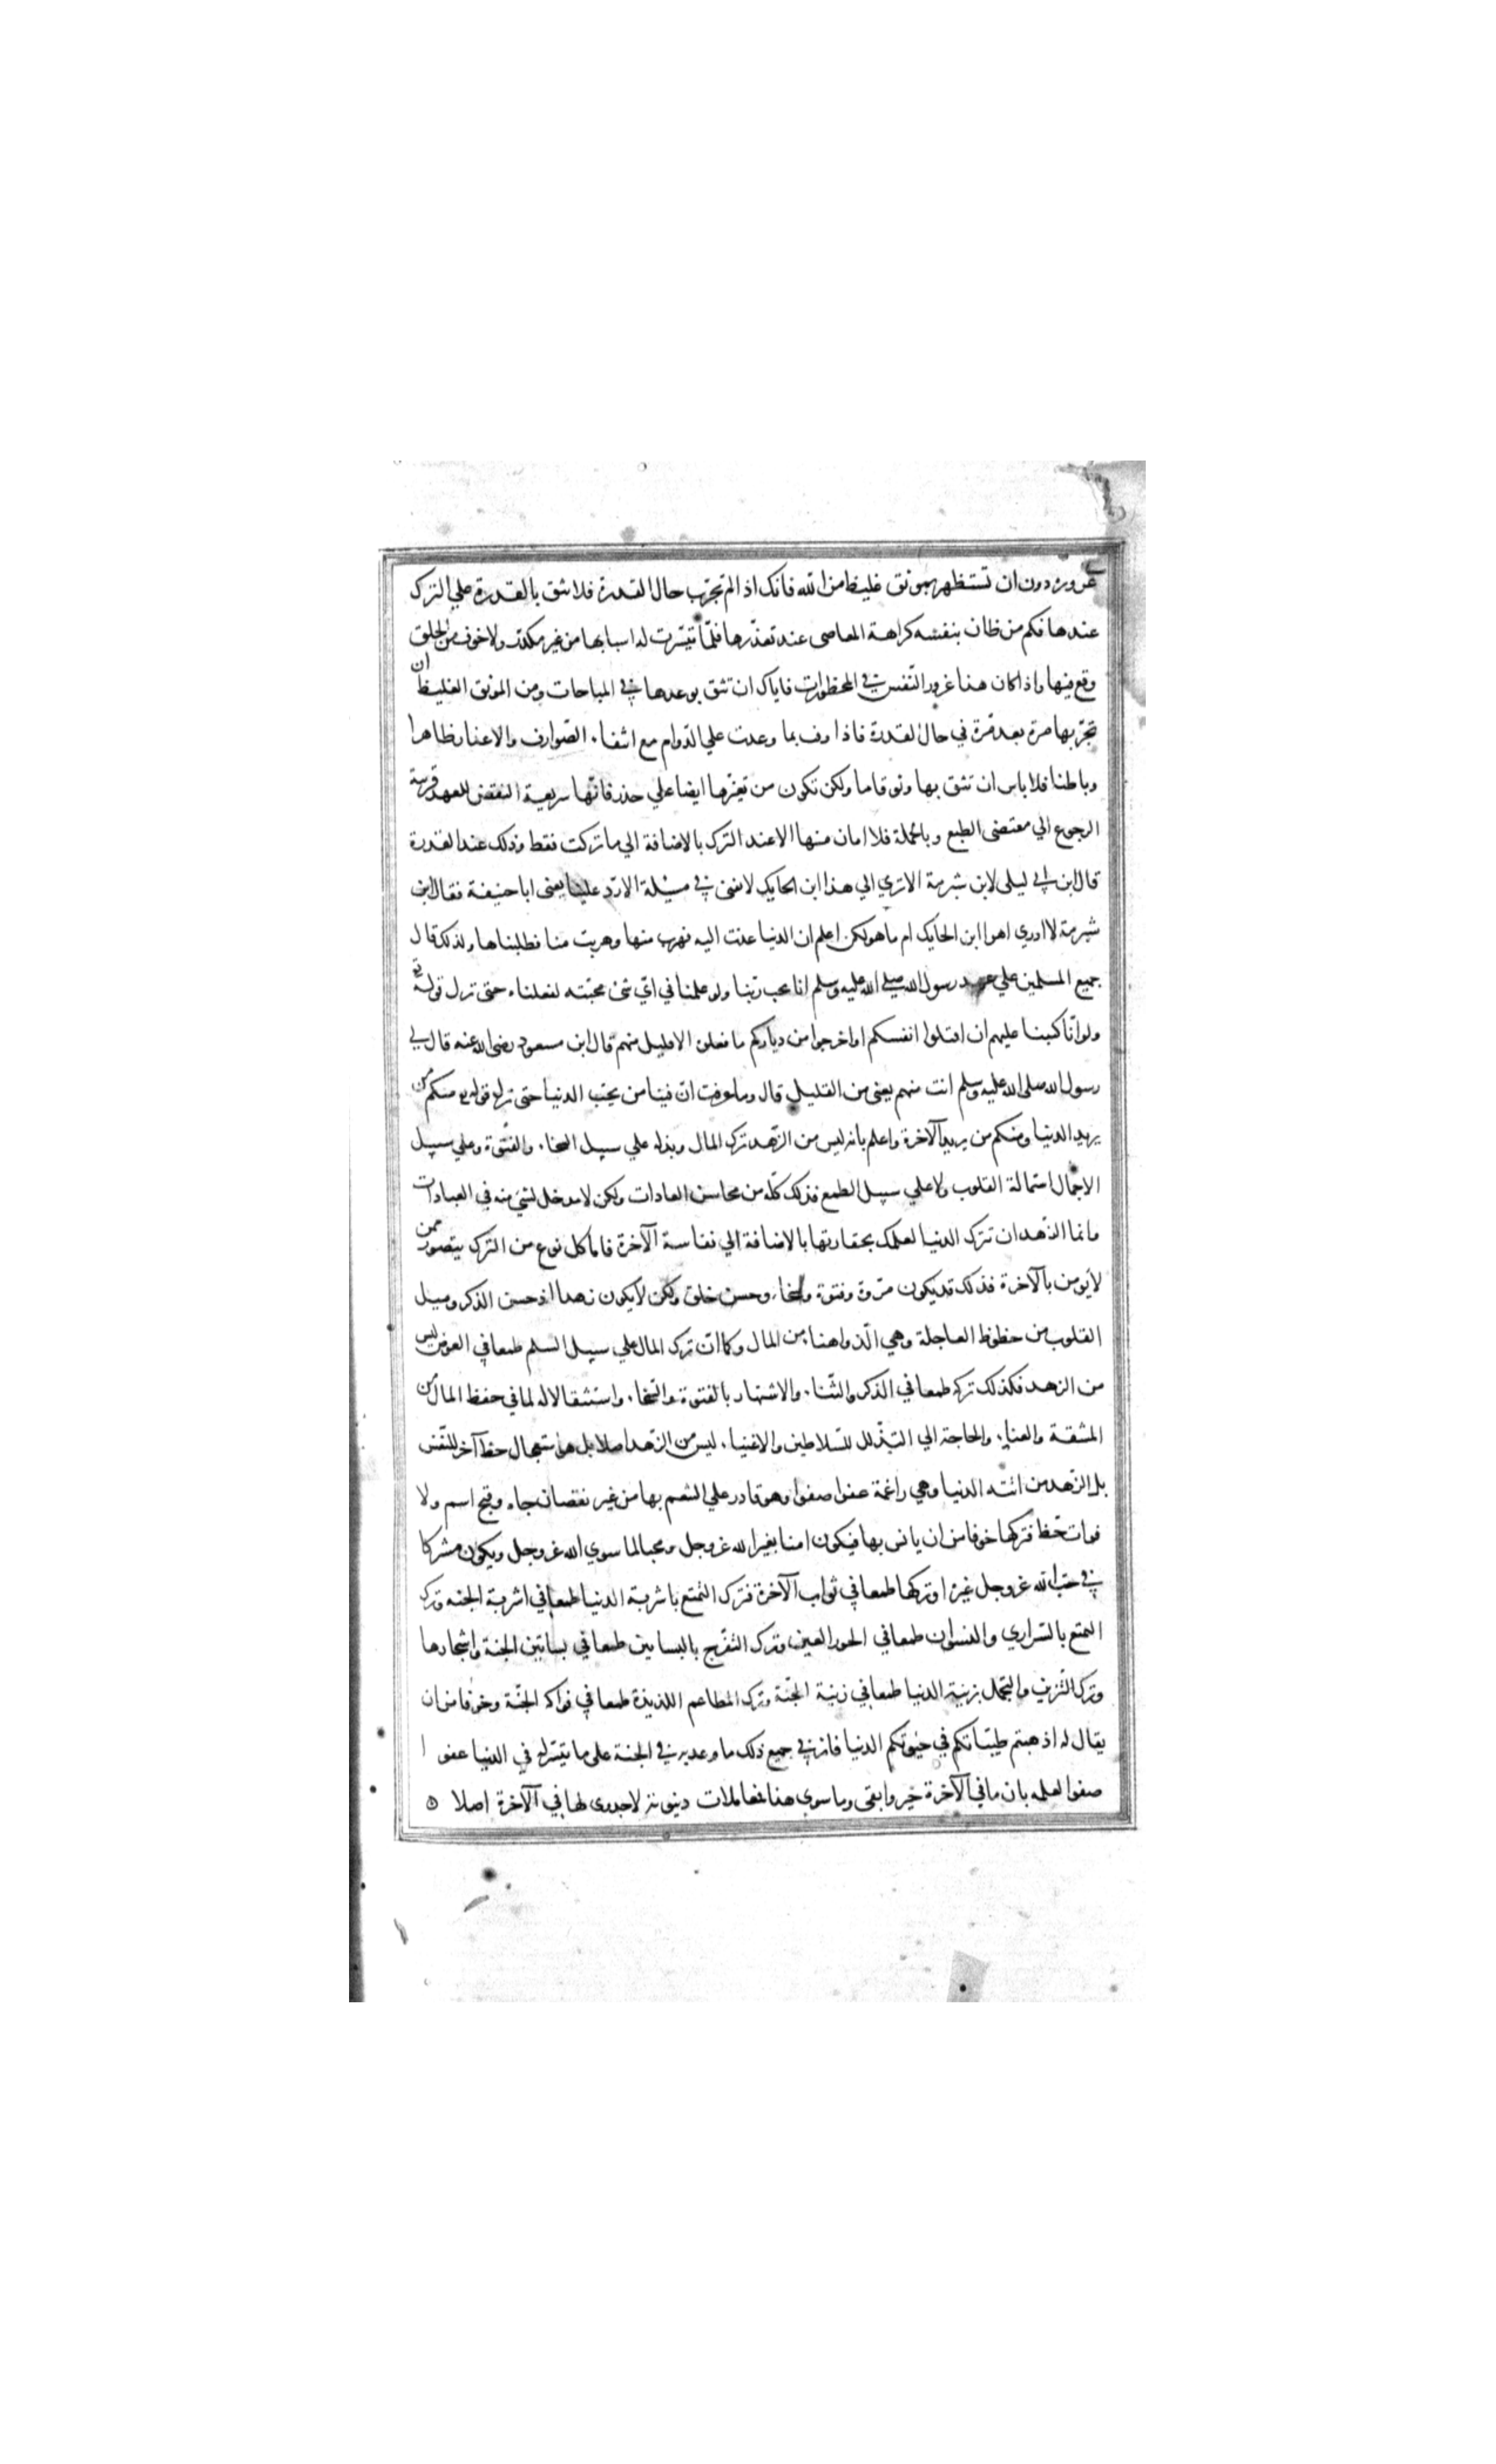 غروره دون ان تستظهر بموثق غليظ من الله فانك اذا لم تجرب حال القدرة فلا تثق بالقدرة علي الترك
عندها فكم من ظان بنفسه كراهة المعاصى عند تعذرها فلمّا تيسّرت له اسبابها من غير مكدر ولا خوف من الخلق
وقع فيها واذا كان هذا غرور النّفس في المحظورات فاياك ان تثق بوعدها في المباحات ومن الموثق الغليظ ان
تجرّبها مرة بعد مرّة في حال القدرة فاذا وف بما وعدت علي الدّوام مع انتفاء الصّوارف والاعذار ظاهرا
وباطنا فلا باس ان تثق بها وثوقا ما ولكن تكون من تغيّرها ايضا علي حذر فانّها سريعة النقض للعهد قريبة
الرجوع الي مقتضى الطبع وبالجملة فلا امان منها الا عند الترك بالاضافة الي ما تركت فقط وذلك عند القدرة
قال ابن ابي ليلى لابن شبرمة الا تري الي هذا ابن الحايك لا نفتى في مسئلة الا ردّ علينا يعنى ابا حنيفة فقال ابن
شبرمة لا ادري اهوا ابن الحايك ام ما هو لكن اعلم ان الدنيا غدت اليه فهرب منها وهربت منا فطلبناها ولذلك قال
جميع المسلمين علي عهد رسول الله صلي الله عليه وسلم انا نحب ربّنا ولو علمنا في ايّ شئ محبّته لفعلناه حتى نزل قوله تع
ولو انّا كتبنا عليهم ان اقتلوا انفسكم او اخرجوا من دياركم ما فعلوه الا قليل منهم قال ابن مسعود رضى الله عنه قال لي
رسول الله صلى الله عليه وسلم انت منهم يعنى من القليل قال وما عرفت انّ فينا من يحبّ الدنيا حتى نزل قوله تع منكم من
يريد الدنيا ومنكم من يريد الآخرة واعلم بانه ليس من الزّهد ترك المال وبذله علي سبيل السخاء والفتوّة وعلي سبيل
الاجمال استمالة القلوب ولا علي سبيل الطمع فذلك كلّه من محاسن العادات ولكن لا مدخل لشئ منه في العبادات
وانما الزّهد ان تترك الدنيا لعلمك بحقارتها بالاضافة الي نفاسة الآخرة فاما كل نوع من الترك يتصور ممن
لا يومن بالآخرة فذلك قد يكون مروّة وفتوة وسخاء وحسن خلق ولكن لا يكون زهدا اذ حسن الذكر وميل
القلوب من حظوظ العاجلة وهي الّذ واهنا من المال وكما انّ ترك المال علي سبيل السلم طمعا في العوض ليس
من الزهد فكذلك تركه طمعا في الذكر والثّناء والاشتهار بالفتوة والسّخاء واستثقالا له لما في حفظ المال من
المشقة والعناء والحاجة الي التّذلل للسّلاطين والاغنياء ليس من الزّهد اصلا بل هو استعجال حظ آخر للنّفس
بل الزّهد من اتته الدنيا وهي راغمة عفوا صفوا وهو قادر علي التنعم بها من غير نقصان جاه وقبح اسم ولا
فوات حظ فتركها خوفا من ان يانس بها فيكون انسا بغير الله عزوجل ومحبا لما سوي الله عزوجل ويكون مشركا
في حبّ الله عزوجل غيره او تركها طمعا في ثواب الآخرة فترك التّمتع باشربة الدنيا طمعا في اشربة الجنه وترك
التمتع بالسّراري والنسوان طمعا في الحور العين وترك التّفرّج بالبساتين طمعا في بساتين الجنة واشجارها
وترك التّزين والتجمل بزينة الدنيا طمعا في زينة الجنّة وترك المطاعم اللذيذة طمعا في فواكه الجنّة وخوفا من ان
يقال له اذهبتم طيّباتكم في حيوتكم الدنيا فاثر في جميع ذلك ما وعد به في الجنة على ما تيسّر له في الدنيا عفوا
صفوا لعلمه بان ما في الآخرة خير وابقى وما سوي هذا فعاملات دنيوية لا جدوى لها في الآخرة اصلا